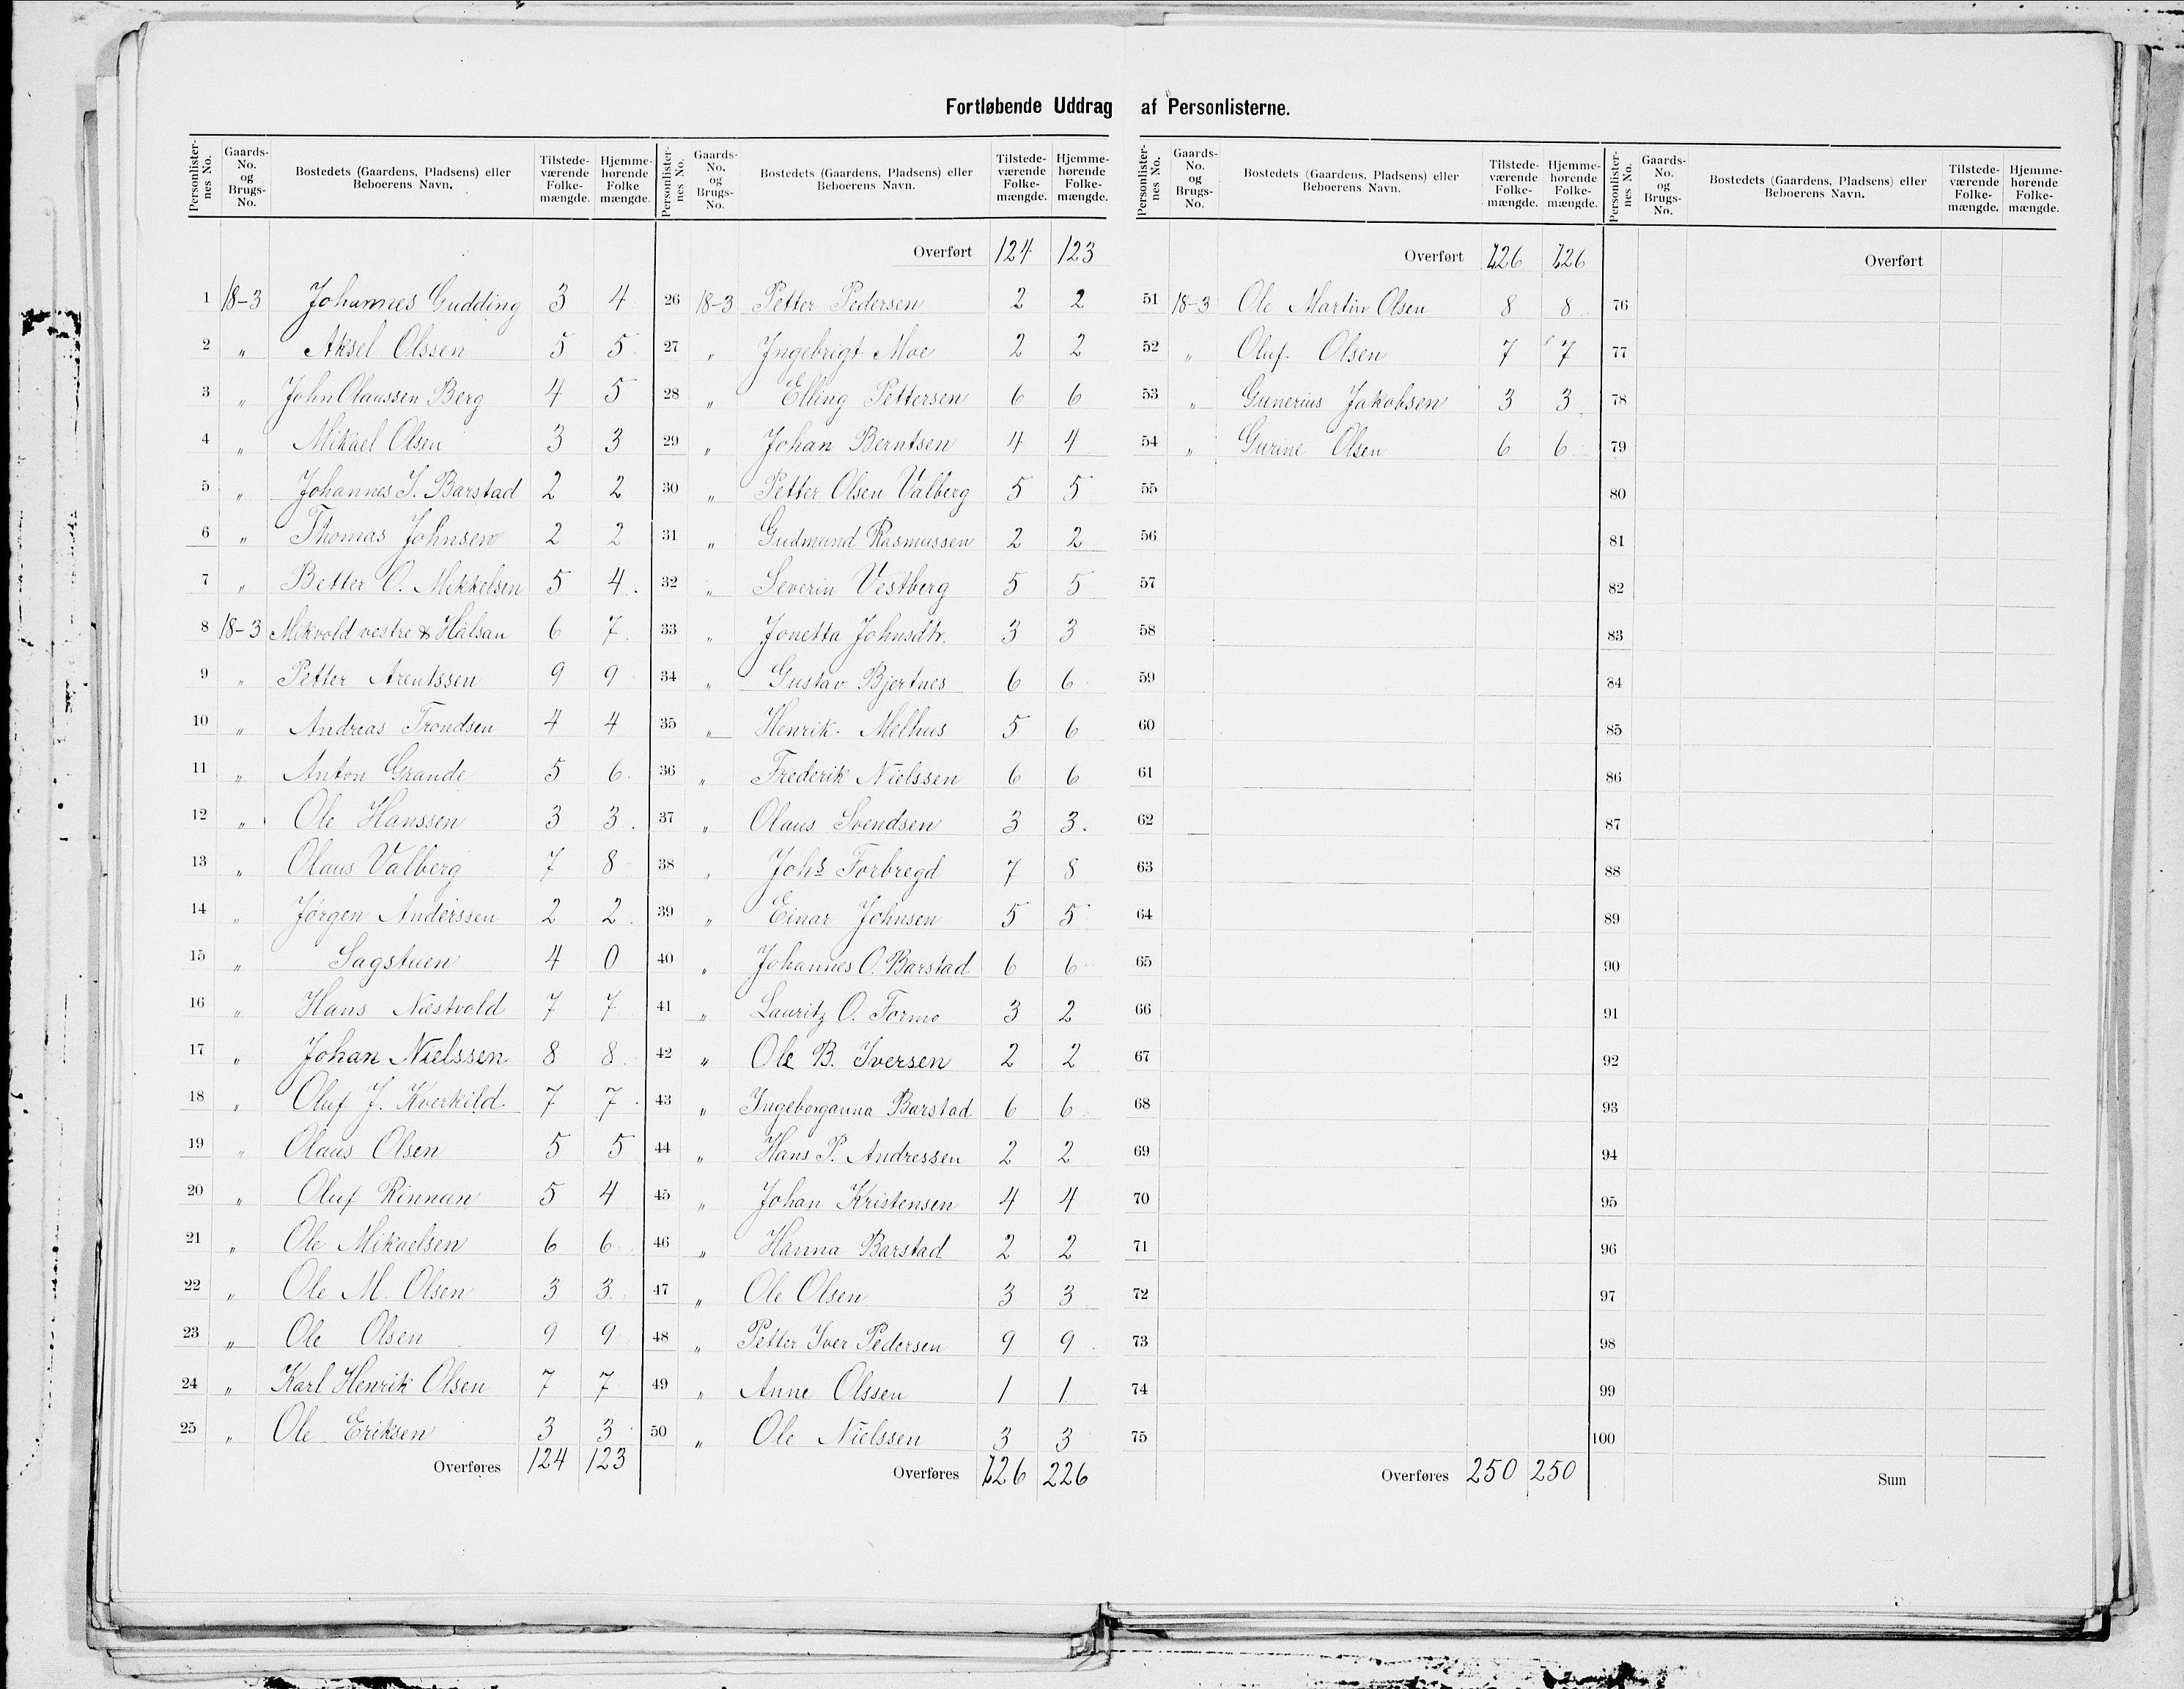 Fortløbende Uddrag af Personlisterne.
Personlisternes No. Gaards-No. og Brugs-No. Bostedets (Gaardens, Pladsens) eller Beboerens Navn. Tilstedeværende Folkemængde. Hjemmehørende Folkemængde.
1 18-3 Johannes Gudding 3 4
2 " Aksel Olssen 5 5
3 " John Olaussen Berg 4 5
4 " Mikael Olsen 3 3
5 " Johannes J. Barstad 2 2
6 " Thomas Johnsen 2 2
7 " Better O. Mikkelsen 5 4
8 18-3 Mikvold vestre & Halsan 6 7
9 " Petter Arentssen 9 9
10 " Andreas Trondsen 4 4
11 " Anton Grande 5 6
12 " Ole Hanssen 3 3
13 " Olaus Valberg 7 8
14 " Jørgen Anderssen 2 2
15 " Sagstuen 4 0
16 " Hans Næstvold 7 7
17 " Johan Nielssen 8 8
18 " Oluf J. Kverkild 7 7
19 " Olaus Olsen 5 5
20 " Oluf Rinnan 5 4
21 " Ole Mikaelsen 6 6
22 " Ole M. Olsen 3 3
23 " Ole Olsen 9 9
24 " Karl Henrik Olsen 7 7
25 " Ole Eriksen 3 3
Overføres 124 123
Personlisternes No. Gaards-No. og Brugs-No. Bostedets (Gaardens, Pladsens) eller Beboerens Navn. Tilstedeværende Folkemængde. Hjemmehørende Folkemængde.
Overført 124 123
26 18-3 Petter Pedersen 2 2
27 " Ingebrigt Moe 2 2
28 " Elling Pettersen 6 6
29 " Johan Berntsen 4 4
30 " Petter Olsen Valberg 5 5
31 " Gudmund Rasmussen 2 2
32 " Severin Vestberg 5 5
33 " Jonetta Johnsdtr. 3 3
34 " Gustav Bjertnes 6 6
35 " Henrik Melhus 5 6
36 " Frederik Nielssen 6 6
37 " Olaus Svendsen 3 3
38 " Johs Forbregd 7 8
39 " Einar Johnsen 5 5
40 " Johannes O. Barstad 6 6
41 " Lauritz O. Formo 3 2
42 " Ole B. Iversen 2 2
43 " Ingeborganna Barstad 6 6
44 " Hans P. Andressen 2 2
45 " Johan Kristensen 4 4
46 " Hanna Barstad 2 2
47 " Ole Olsen 3 3
48 " Petter Iver Pedersen 9 9
49 " Anne Olssen 1 1
50 " Ole Nielssen 3 3
Overføres 226 226
Personlisternes No. Gaards-No. og Brugs-No. Bostedets (Gaardens, Pladsens) eller Beboerens Navn. Tilstedeværende Folkemængde. Hjemmehørende Folkemængde.
Overført 226 226
51 18-3 Ole Martin Olsen 8 8
52 " Oluf Olsen 7 7
53 " Gunerius Jakobsen 3 3
54 " Gurine Olsen 6 6
55
56
57
58
59
60
61
62
63
64
65
66
67
68
69
70
71
72
73
74
75
Overføres 250 250
Personlisternes No. Gaards-No. og Brugs-No. Bostedets (Gaardens, Pladsens) eller Beboerens Navn. Tilstedeværende Folkemængde. Hjemmehørende Folkemængde.
Overført
76
77
78
79
80
81
82
83
84
85
86
87
88
89
90
91
92
93
94
95
96
97
98
99
100
Sum